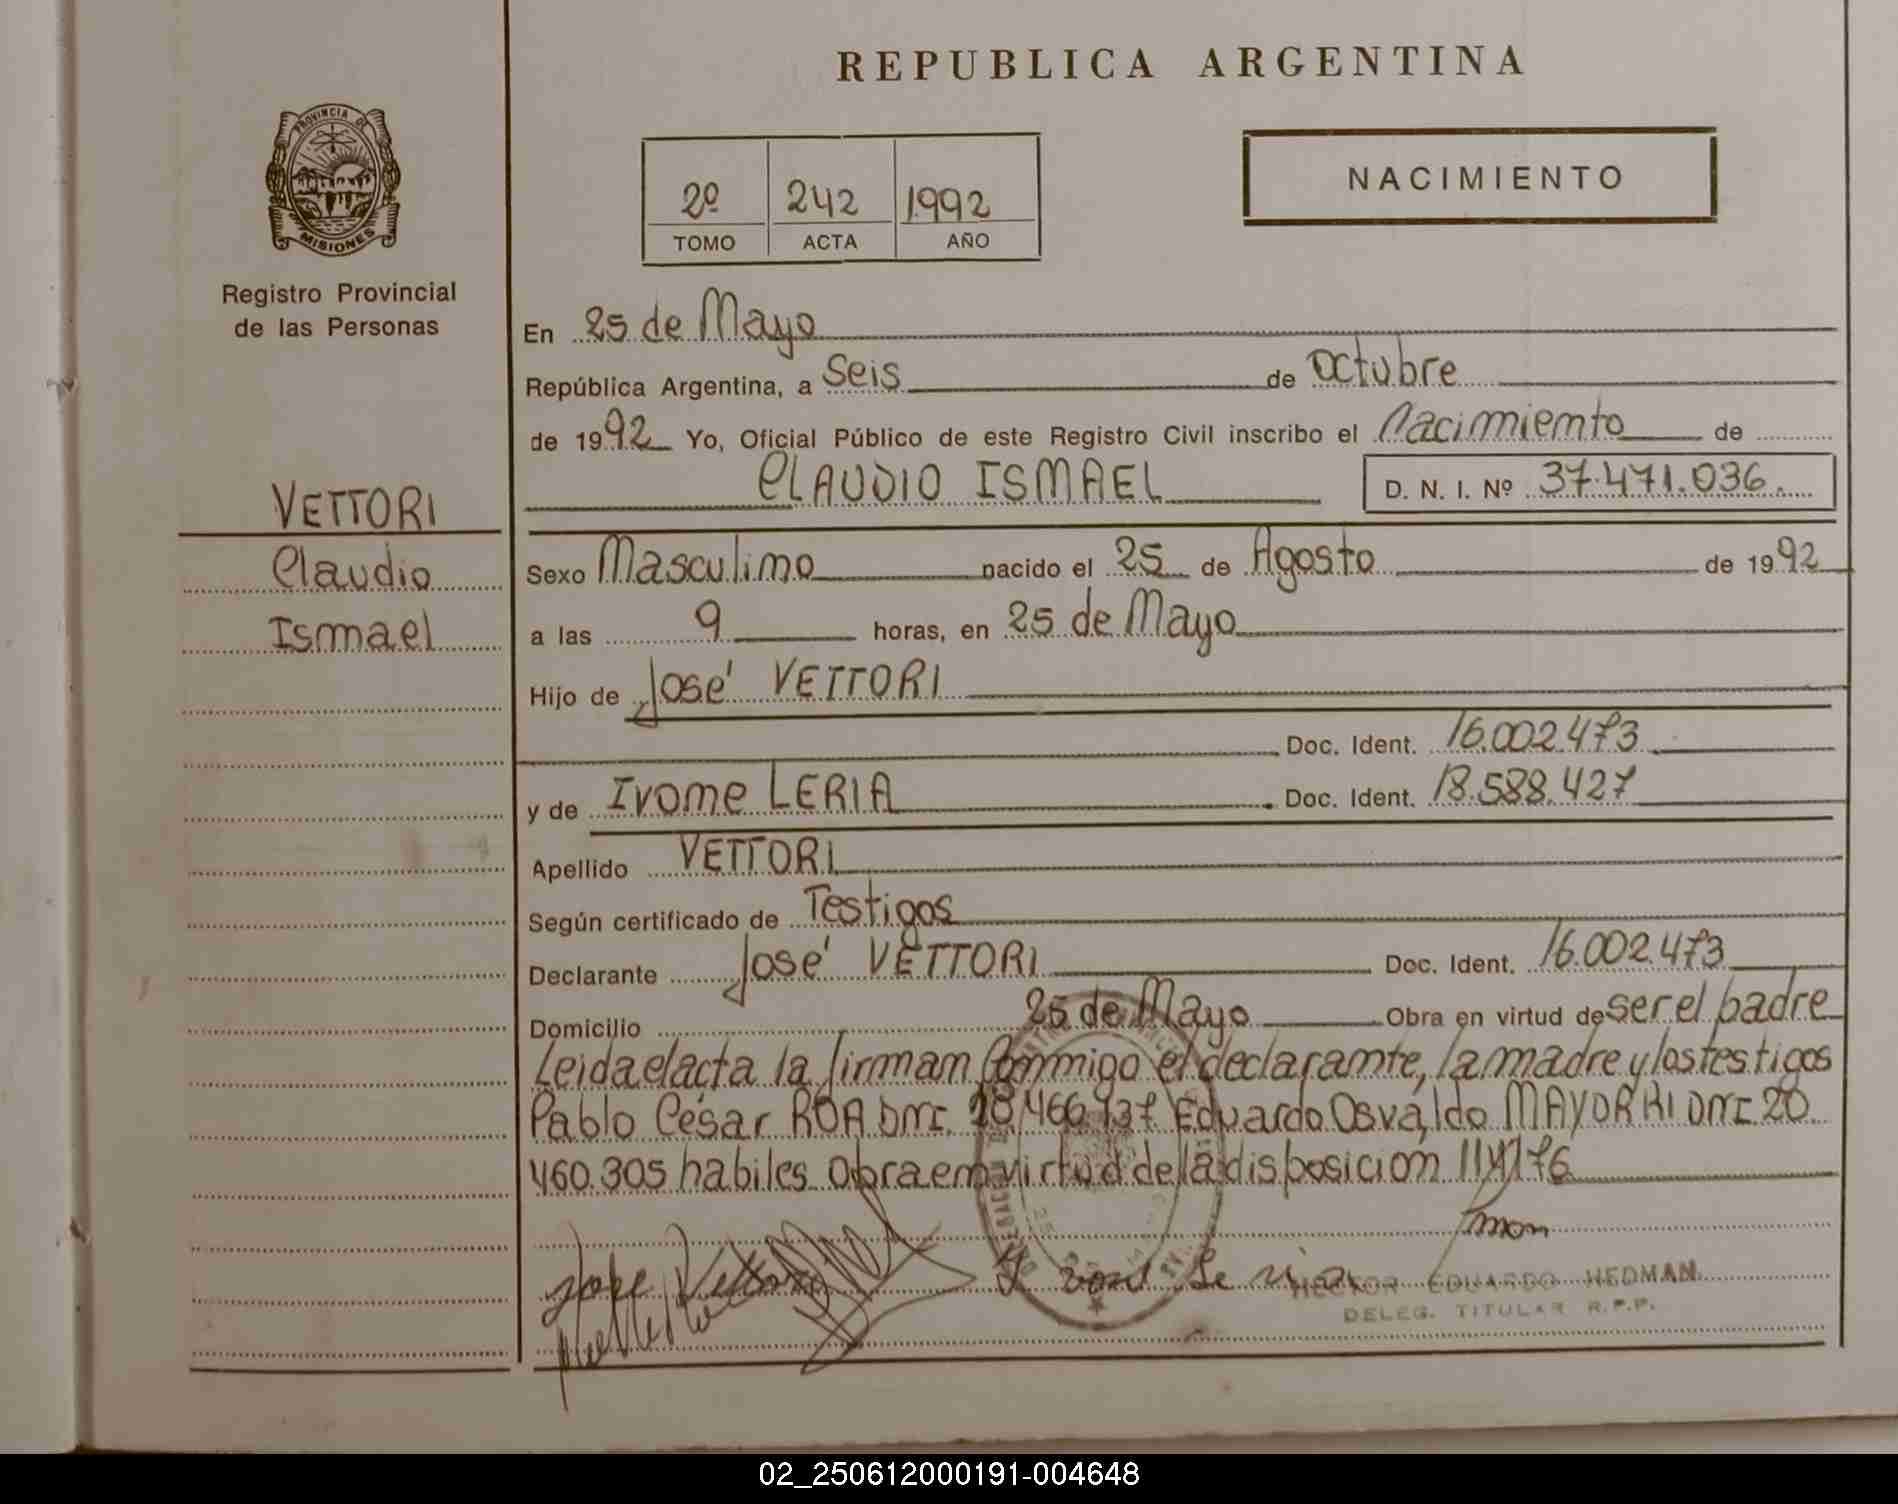 REPUBLICA ARGENTINA
PROVINCIA DE
MISIONES
Registro Provincial
de las Personas
2º 242 1992
TOMO ACTA AÑO
NACIMIENTO
VETTORI
Claudio
Ismael
En 25 de Mayo
República Argentina, a Seis de Octubre
de 1992 Yo, Oficial Público de este Registro Civil inscribo el Nacimiento de
CLAUDIO ISMAEL D. N. I. Nº 37.471.036.
Sexo Masculino nacido el 25 de Agosto de 1992
a las 9 horas, en 25 de Mayo
Hijo de José VETTORI
Doc. Ident. 16.002.473
y de Ivone LERIA Doc. Ident. 18.588.427
Apellido VETTORI
Según certificado de Testigos
Declarante José VETTORI Doc. Ident. 16.002.473
Domicilio 25 de Mayo Obra en virtud de ser el padre
Leida el acta la firman conmigo el declarante, la madre y los testigos
Pablo César ROA DNI. 466.937 Eduardo Osvaldo DNI. 20
460.305 habiles Obra en virtud de la disposicion
Jose Vettori
HECTOR EDUARDO HEDMAN
DELEG. TITULAR R.P.P.
02_250612000191-004648